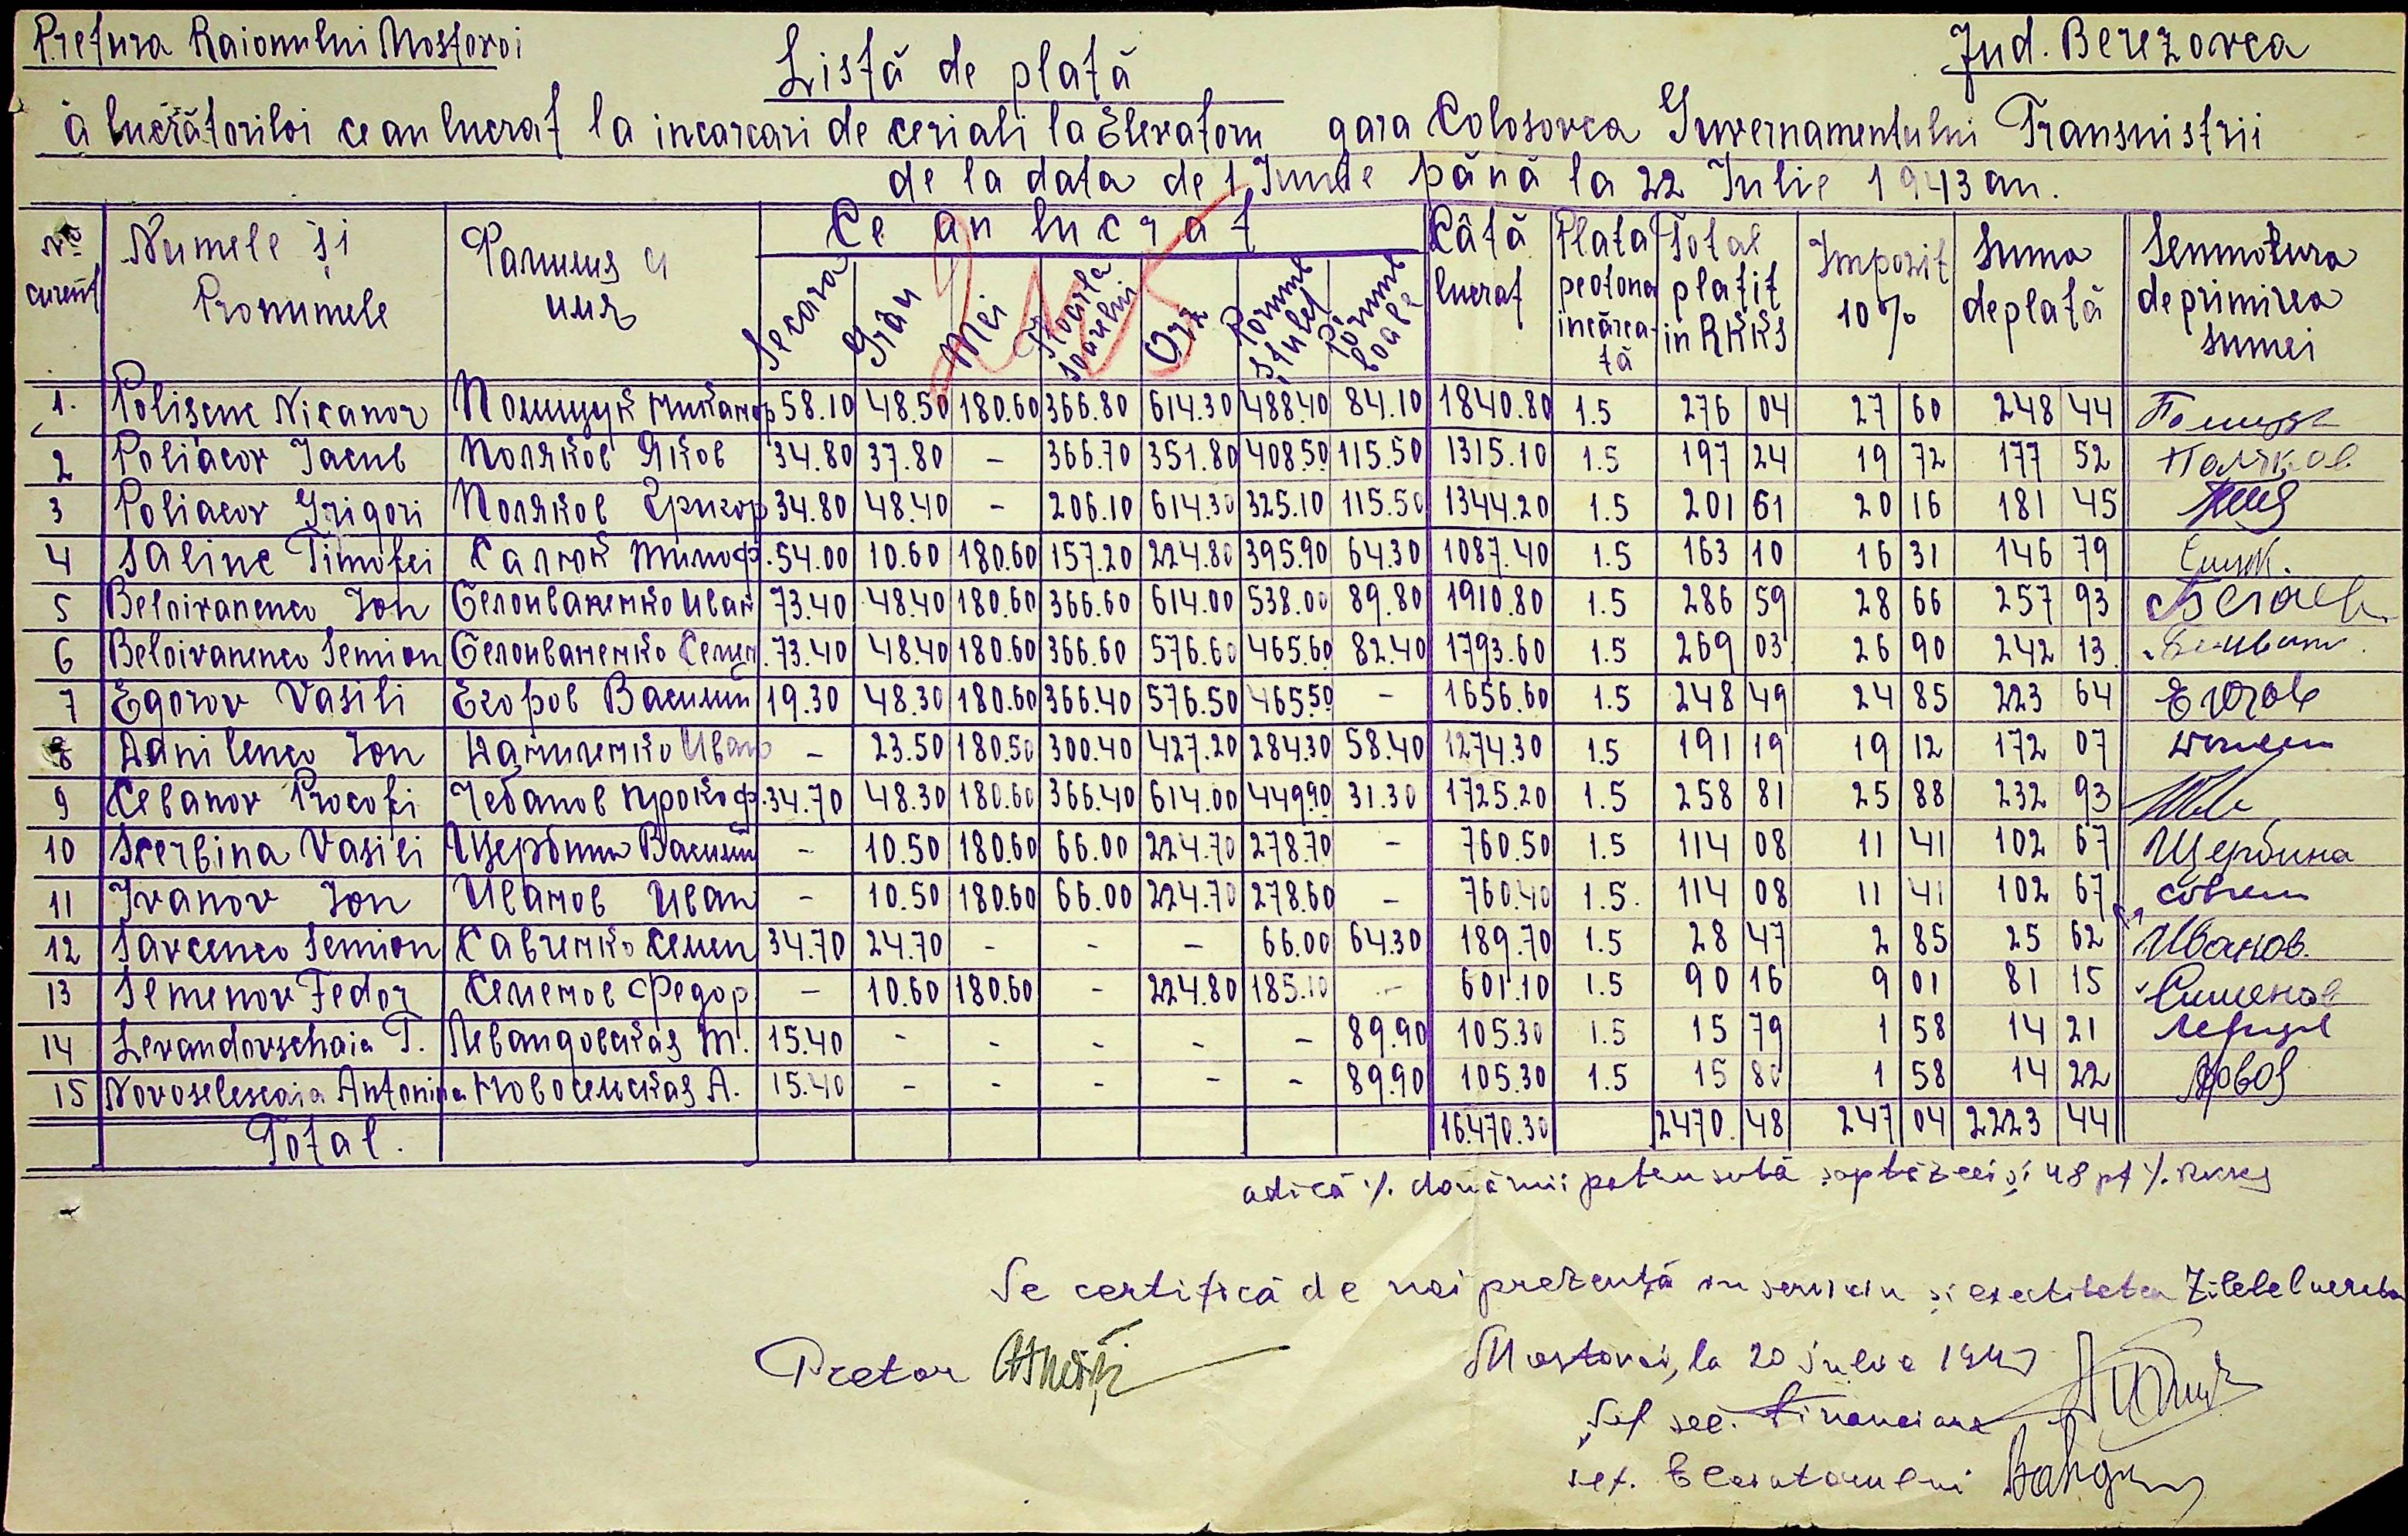 Pretura Raionului Mostovoi
Jud. Berezovca
Listă de plată
a lucrătoriloi ce au lucrat la incarcari de ceriali la Elevatoru gara Colosovca Guvernamentului Transnistrii
de la data de 1 Iunie până la 22 Iulie 1943 an.
No curent Numele și Pronumele Фамилия и имя Ce au lucrat Câtă lucrat Plata pe tona incărcată Total platit in RKKS Impozit 10% Suma de plată Semnotura de primirea sumei
Secara Grâu Mei Floarea soarelui Orz Porumb știuleț Porumb boabe
1. Polisciuc Nicanor Полищук Никанор 58.10 48.50 180.60 366.80 614.30 488.40 84.10 1840.80 1.5 276 04 27 60 248 44
2 Poliacov Iacub Поляков Яков 34.80 37.80 - 366.70 351.80 408.50 115.50 1315.10 1.5 197 24 19 72 177 52 Поляков
3 Poliacov Grigori Поляков Григор 34.80 48.40 - 206.10 614.30 325.10 115.50 1344.20 1.5 201 61 20 16 181 45
4 Saliuc Timofei Салюк Тимоф. 54.00 10.60 180.60 157.20 224.80 395.90 64.30 1087.40 1.5 163 10 16 31 146 79
5 Beloivanenco Ion Белоиваненко Иван 73.40 48.40 180.60 366.60 614.00 538.00 89.80 1910.80 1.5 286 59 28 66 257 93
6 Beloivanenco Semion Белоиваненко Семен. 73.40 48.40 180.60 366.60 576.60 465.60 82.40 1793.60 1.5 269 03 26 90 242 13
7 Egorov Vasili Егоров Василий 19.30 48.30 180.60 366.40 576.50 465.50 - 1656.60 1.5 248 49 24 85 223 64
8 Danilenco Ion Даниленко Иван - 23.50 180.50 300.40 427.20 284.30 58.40 1274.30 1.5 191 19 19 12 172 07
9 Cebanov Procofi Чебанов Прокоф. 34.70 48.30 180.60 366.40 614.00 449.90 31.30 1725.20 1.5 258 81 25 88 232 93
10 Scerbina Vasili Щербина Василий - 10.50 180.60 66.00 224.70 278.70 - 760.50 1.5 114 08 11 41 102 67 Щербина
11 Ivanov Ion Иванов Иван - 10.50 180.60 66.00 224.70 278.60 - 760.40 1.5. 114 08 11 41 102 67
12 Savcenco Semion Савченко Семен 34.70 24.70 - - - 66.00 64.30 189.70 1.5 28 47 2 85 25 62 Иванов.
13 Semenov Fedor Семенов Федор - 10.60 180.60 - 224.80 185.10 - 601.10 1.5 90 16 9 01 81 15
14 Levandovschaia T. Левандовская Т. 15.40 - - - - - 89.90 105.30 1.5 15 79 1 58 14 21
15 Novoselescaia Antonina Новоселская А. 15.40 - - - - - 89.90 105.30 1.5 15 80 1 58 14 22
Total. 16.470.30 2470. 48 247 04 2223 44
adică %. două mii patru sută șaptezeci și 48 pf %. RKKS
Se certifică de noi prezență in serviciu și exactitatea zilele lucrate
Pretor
Mostovoi, la 20 iulie 1943
Șef sec. Financiara
Șef. Elevatorului